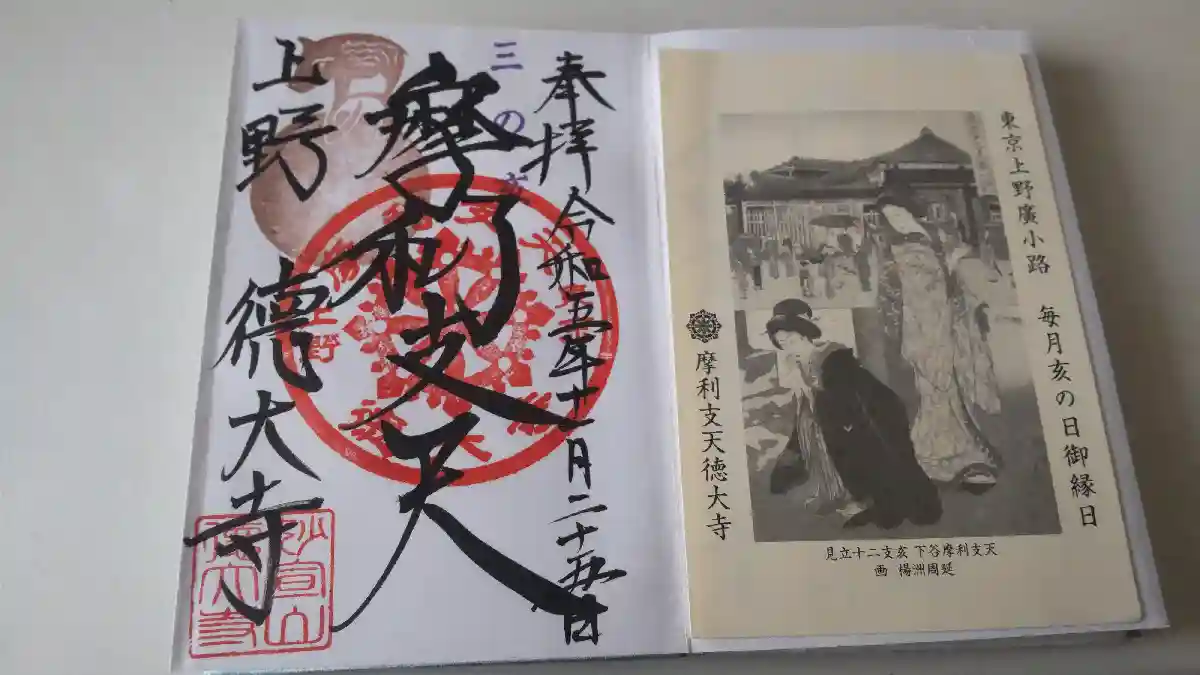 奉拝 令和五年十一月二十五日
三の亥
摩利支天
上野 徳大寺
上野
妙宣山
徳大寺
東京上野廣小路 毎月亥の日御縁日
摩利支天徳大寺
見立十二支亥 下谷摩利支天
画 楊洲周延